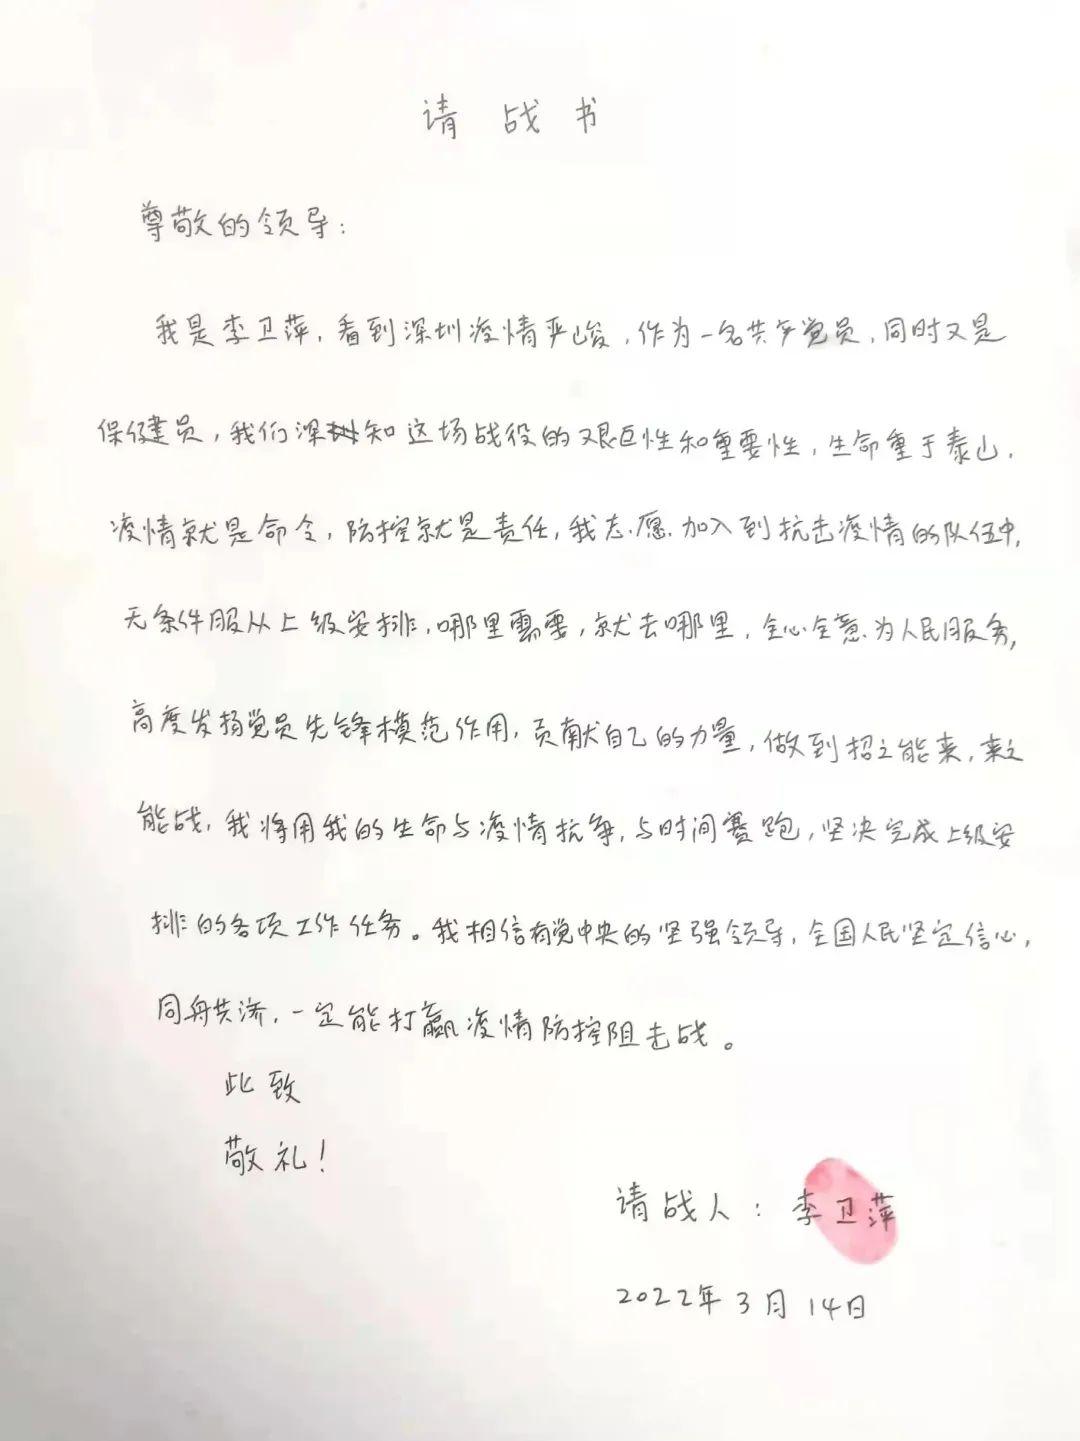 请战书
尊敬的领导：
我是李卫萍，看到深圳疫情严峻，作为一名共产党员，同时又是
保健员，我们深知这场战役的艰巨性和重要性，生命重于泰山.
疫情就是命令，防控就是责任，我志愿加入到抗击疫情的队伍中，
无条件服从上级安排，哪里需要，就去哪里，全心全意为人民服务，
高度发扬党员先锋模范作用，贡献自己的力量，做到招之能来，来之
能战，我将用我的生命与疫情抗争，与时间赛跑，坚决完成上级安
排的各项工作任务。我相信有党中央的坚强领导，全国人民坚定信心，
同舟共济，一定能打赢疫情防控阻击战。
此致
敬礼！
请战人：李卫萍
2022年3月14日